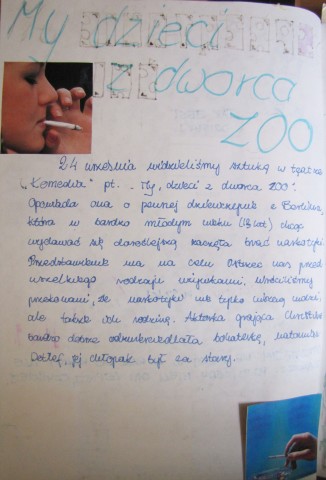 My dzieci
z dworca
ZOO
24 września widzieliśmy sztukę w teatrze
"Komedia" pt. "My, dzieci z dworca ZOO".
Opowiada ona o pewnej dziewczynie z Berlina,
która w bardzo młodym wieku (13 lat) chcąc
wydawać się doroślejszą zaczęła brać narkotyki.
Przedstawienie ma na celu ostrzec nas przed
wszelkiego rodzaju używkami, wróciliśmy
przekonani, że narkotyki nie tylko niszczą ludzi,
ale także ich rodziny. Aktorka grająca Christine
bardzo dobrze odzwierciedlała bohaterkę, natomiast
Detlef, jej chłopak był za stary.